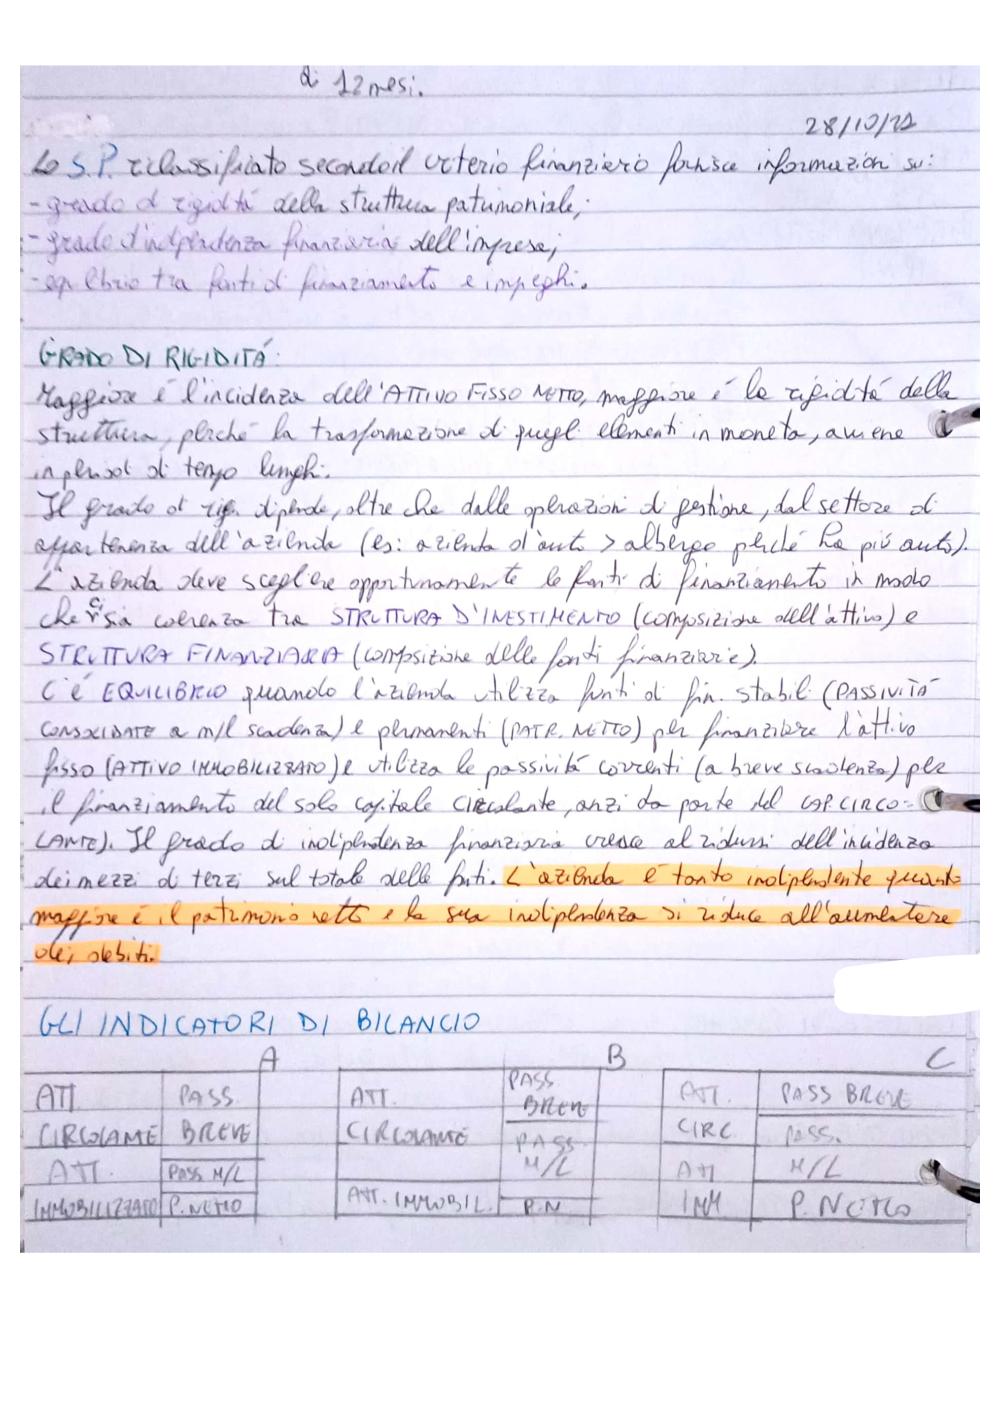 di 12 mesi.
28/10/22
Lo S.P. riclassificato secondo il criterio finanziario fornisce informazioni su:
- grado di rigidità della struttura patrimoniale;
- grado d'indipendenza finanziaria dell'impresa;
- equilibrio tra fonti di finanziamento e impieghi.
GRADO DI RIGIDITÁ:
Maggiore é l'incidenza dell'ATTIVO FISSO NETTO, maggiore é la rigiditá della
struttura, perché la trasformazione di quegli elementi in moneta, avviene
in periodi di tempo lunghi.
Il grado di rig. dipende, oltre che dalle operazioni di gestione, dal settore di
appartenenza dell'azienda (es: azienda d'auto > albergo perché ha piú auto).
L'azienda deve scegliere opportunamente le fonti di finanziamento in modo
che ci sia coerenza tra STRUTTURA D'INESTIMENTO (composizione dell'attivo) e
STRUTTURA FINANZIARIA (composizione delle fonti finanziarie).
C'é EQUILIBRIO quando l'azienda utilizza fonti di fin. stabili (PASSIVITÁ
CONSOLIDATE a m/l scadenza) e permanenti (PATR. NETTO) per finanziare l'attivo
fisso (ATTIVO IMMOBILIZZATO) e utilizza le passivitá correnti (a breve scadenza) per
il finanziamento del solo capitale circolante, anzi da parte del CAP. CIRCO-
LANTE). Il grado di indipendenza finanziaria cresce al ridursi dell'incidenza
dei mezzi di terzi sul totale delle fonti. L'azienda é tanto indipendente quanto
maggiore é il patrimonio netto e la sua indipendenza si riduce all'aumentare
dei debiti.
GLI INDICATORI DI BILANCIO
A B C
ATT. PASS. ATT. PASS BREVE ATT. PASS BREVE
CIRCOLANTE BREVE CIRCOLANTE PASS. M/L CIRC PASS.
ATT. PASS M/L ATT M/L
IMMOBILIZZATO P. NETTO ATT. IMMOBIL. P.N. IMM P. NETTO